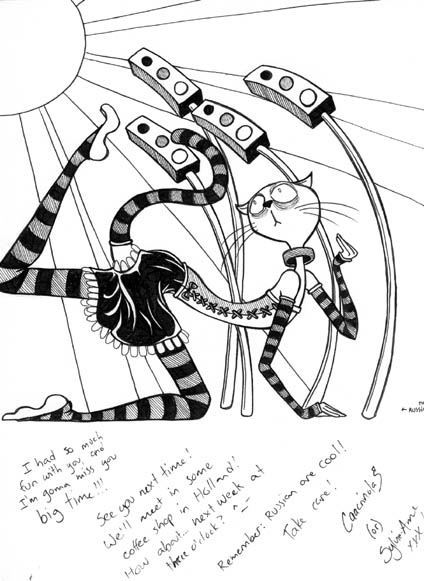 I had so much
fun with you, and
I'm gonna miss you
big time!!!
See you next time!
We'll meet in some
coffee shop in Holland!
How about... next week at
three o'clock? ^_^
Remember: Russian are cool!
Take care!
(or)
xyx